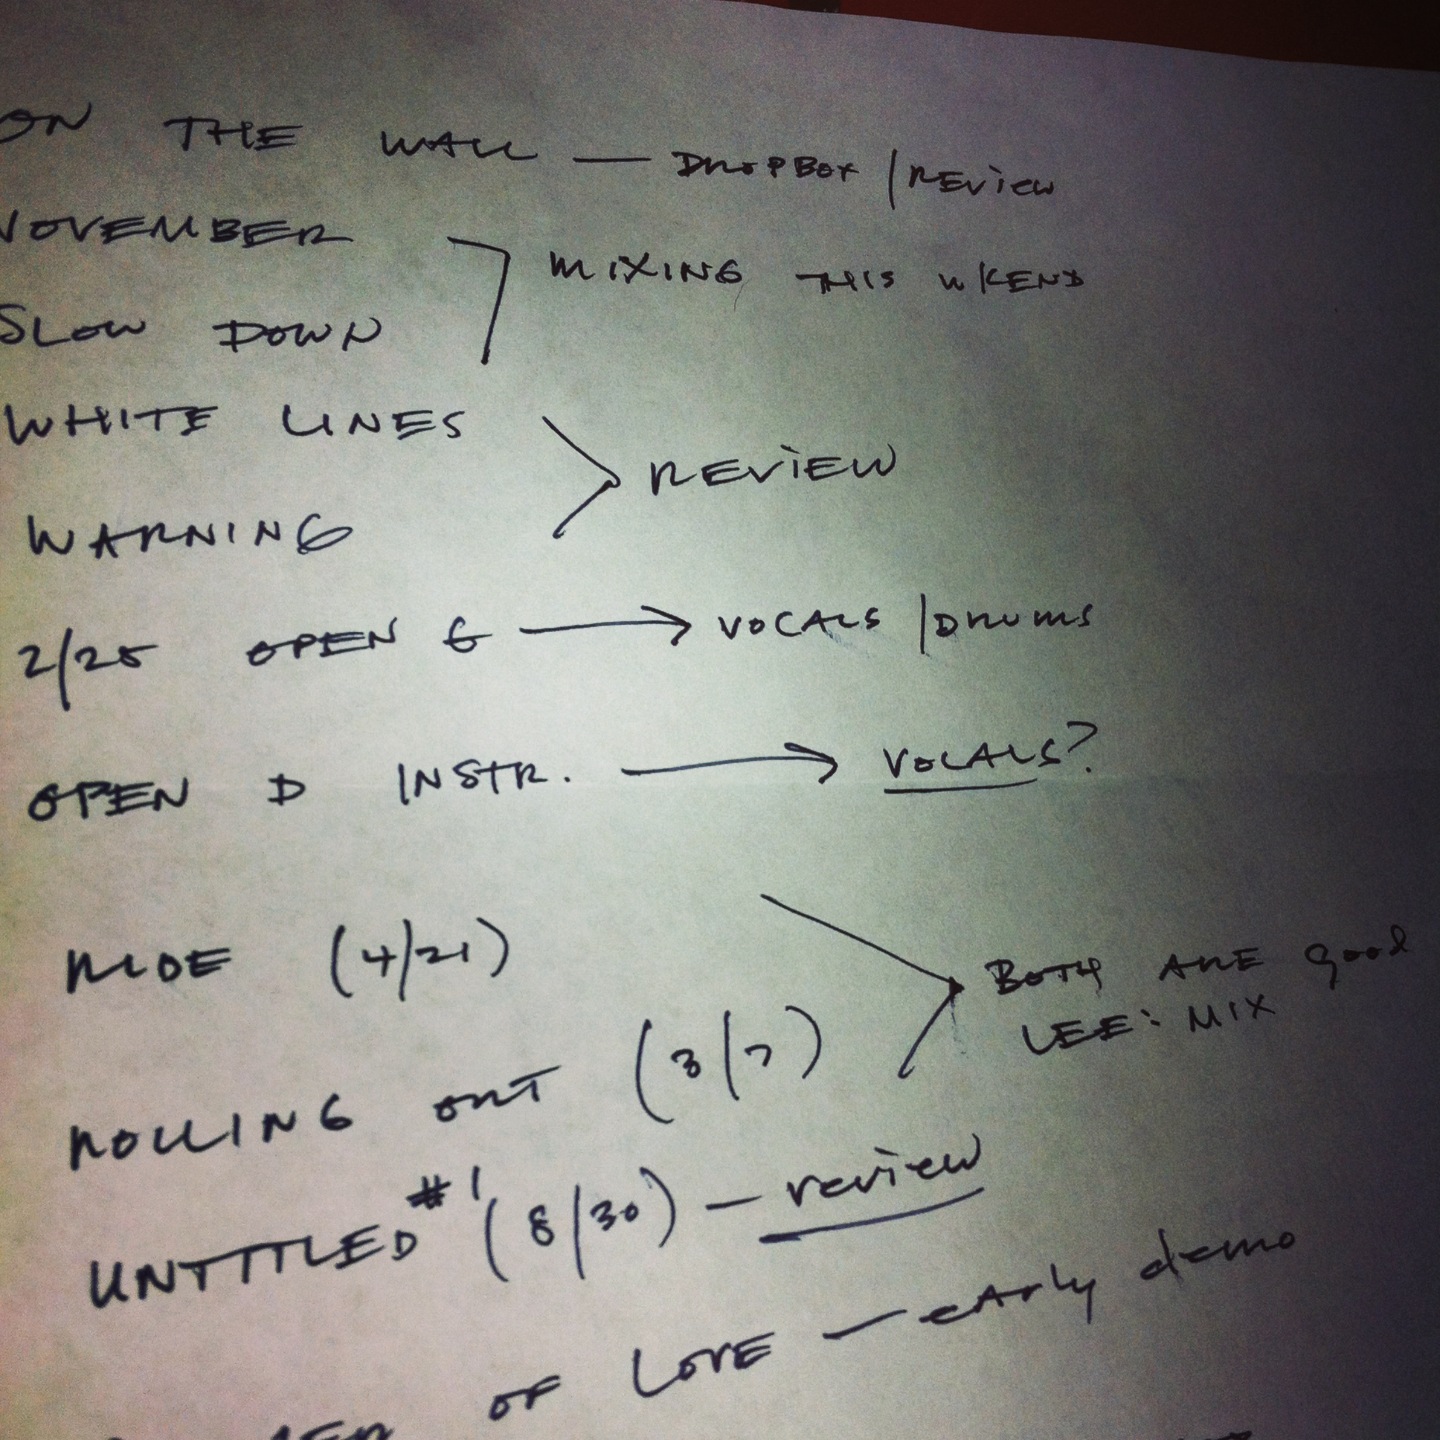 ON THE WALL — DROPBOX / REVIEW
NOVEMBER
MIXING THIS WKEND
SLOW DOWN
WHITE LINES
REVIEW
WARNING
2/25 OPEN G → VOCALS / DRUMS
OPEN D INSTR. → VOCALS?
RIDE (4/21)
BOTH ARE good
LEE: MIX
ROLLING OUT (3/7)
UNTITLED #1 (8/30) — review
OF LOVE — early demo